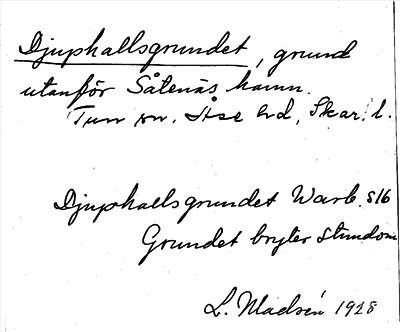 Djuphallsgrundet, grund
utanför Såtenäs hamn.
Tun sn. Åse hd, Skar. l.
Djuphallsgrundet Warb. s16
Grundet bryter stundom
L. Madsén 1928